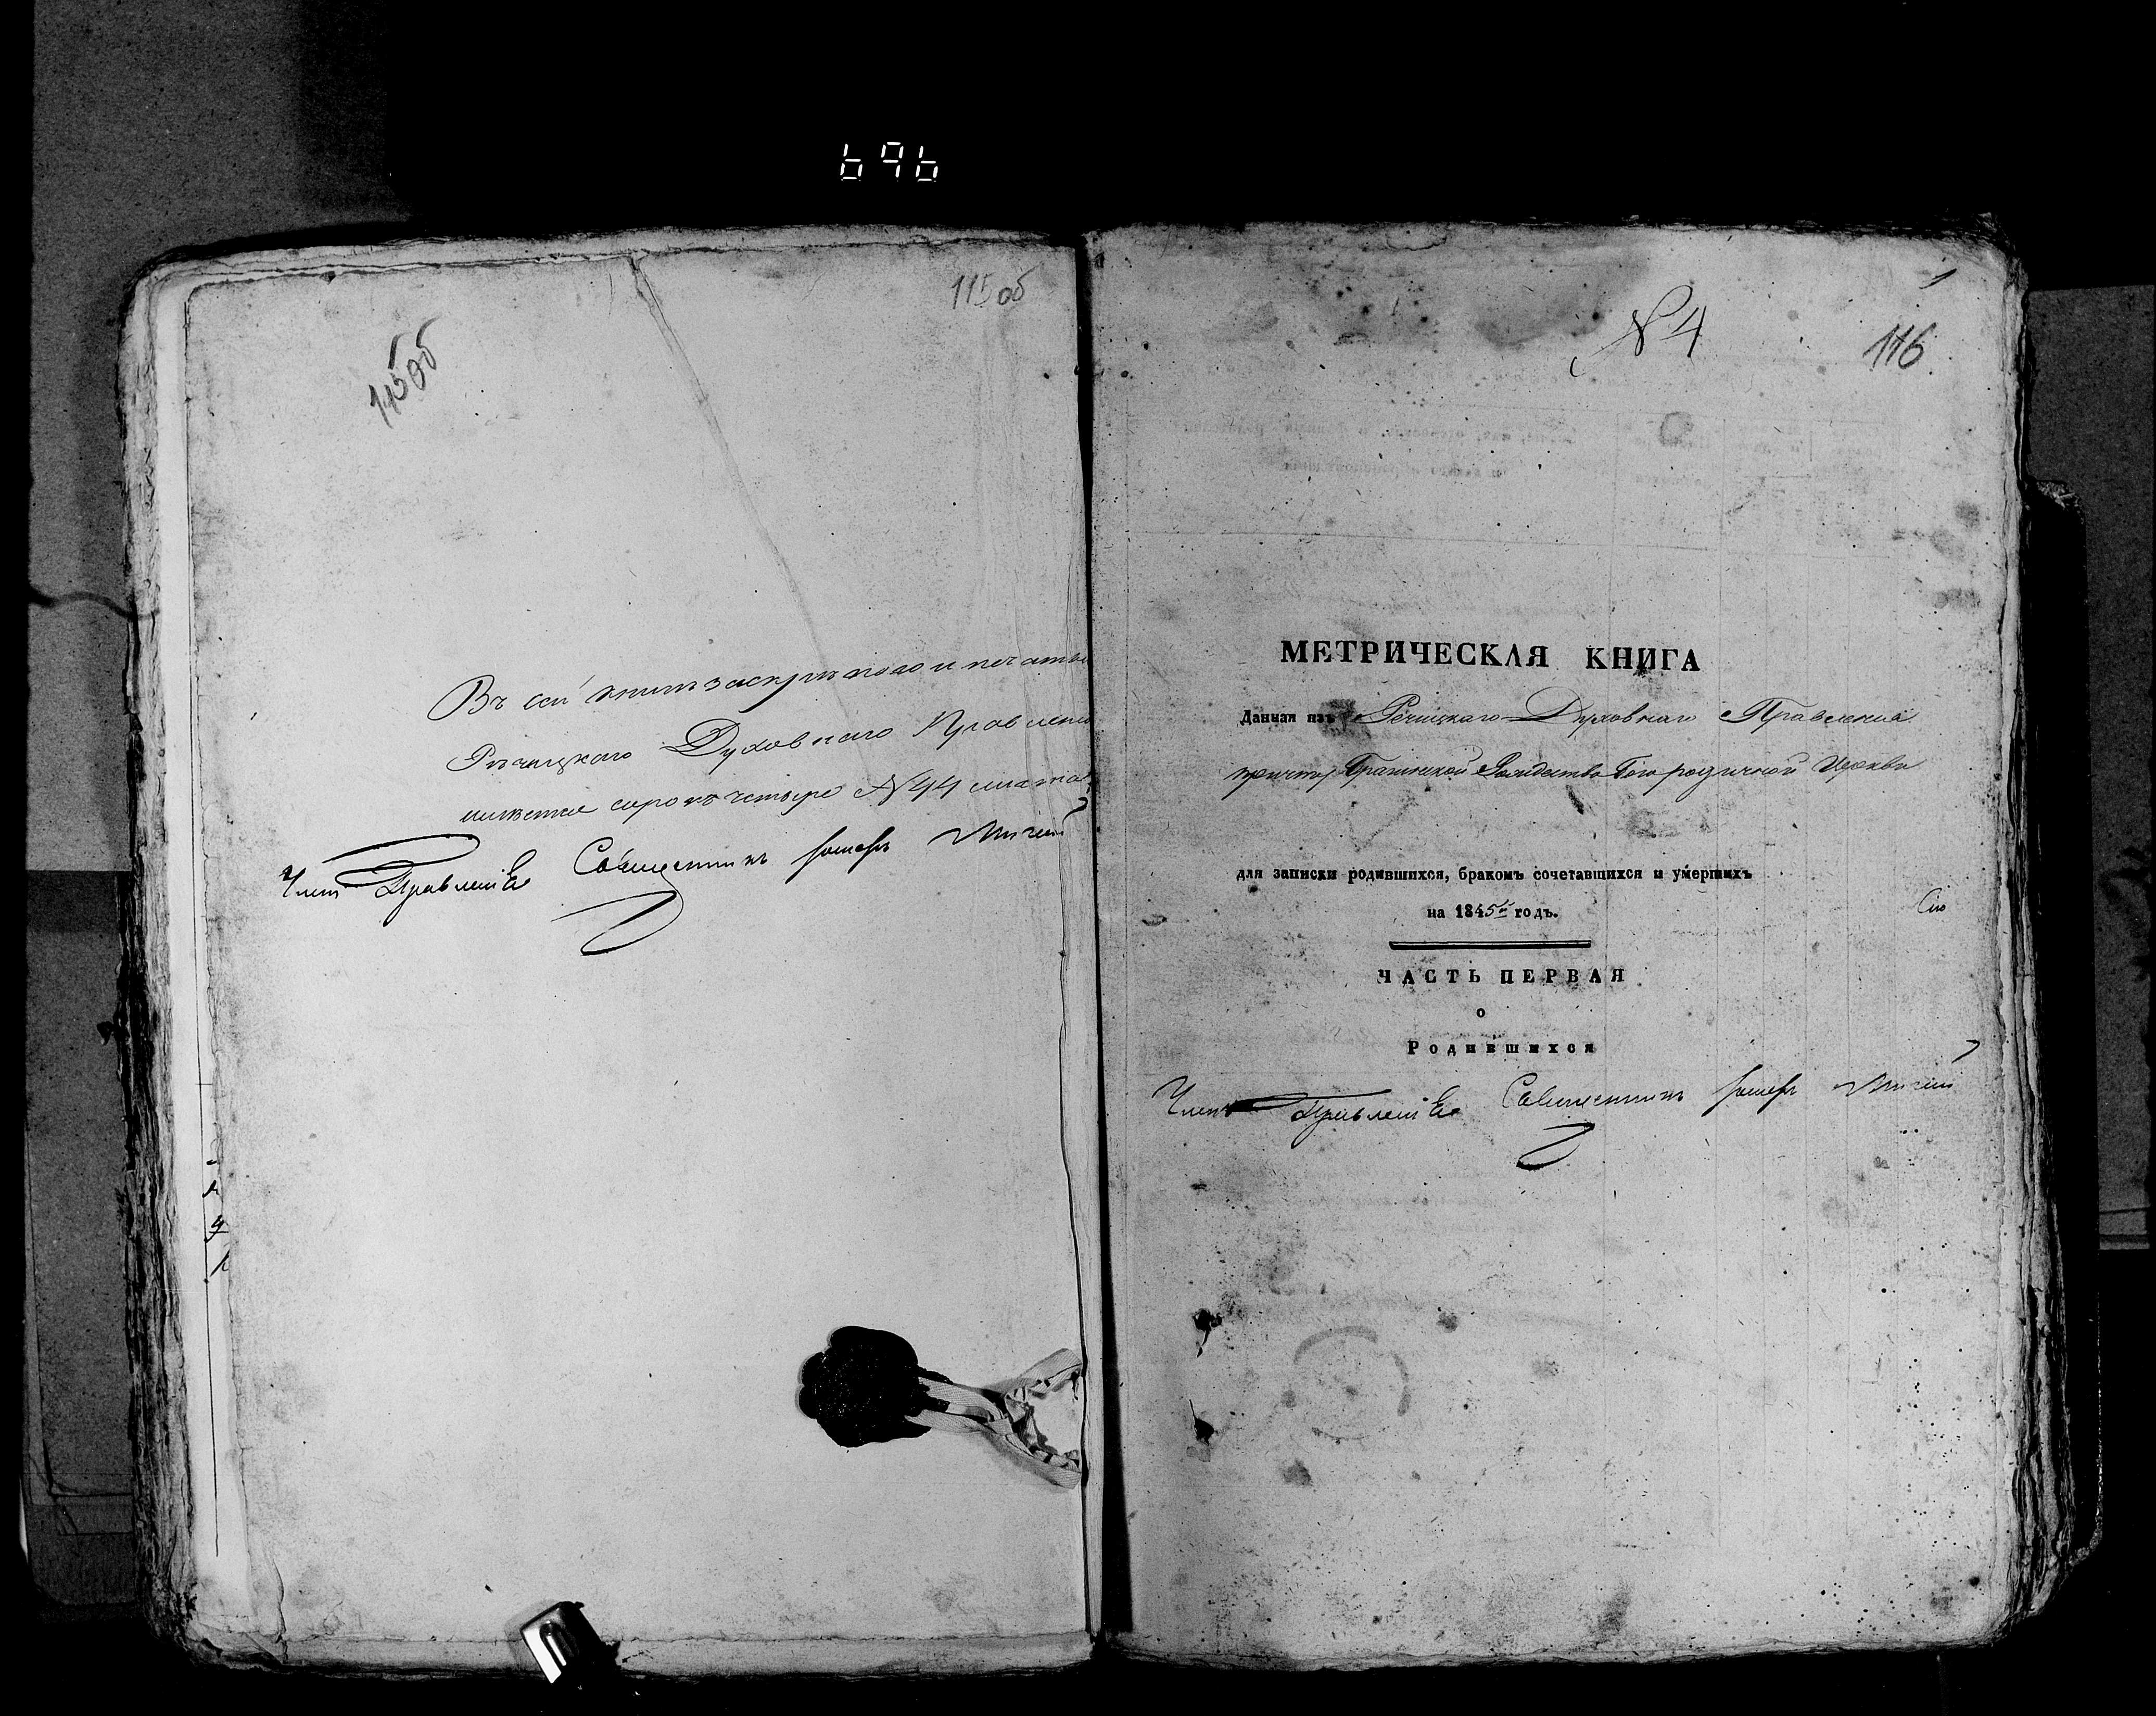 696
115об
115об
Въ сей книгѣ за скрѣпою и печатью
Рѣчицкаго Духовнаго Правленія
имѣется сорокъ четыре №44 листа
Членъ Правленія Священникъ
№4
1
116
МЕТРИЧЕСКАЯ КНИГА
Данная изъ Речицкаго Духовнаго Правленія
причту Рождество Богородичной Церкви
для записки родившихся, бракомъ сочетавшихся и умершихъ
на 1845й годъ.
ЧАСТЬ ПЕРВАЯ
о
Родившихся
Членъ Правленія Священникъ